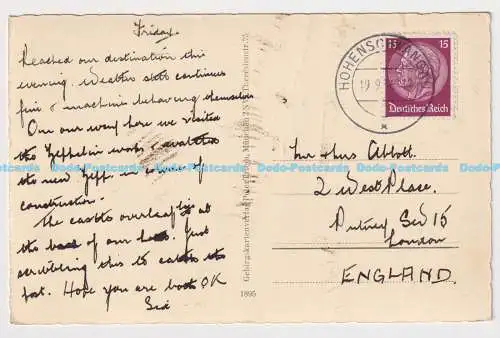 Friday
Reached our destination this
evening. Weather still continues
fine & machines behaving themselves
On our way here we visited
the Zeppelin works &
the new Zepp in course of
construction.
The castle overleaf is at
the back of our hotel. Just
scribbling this to catch the
post. Hope you are both OK
Sid
Gebirgskartenverlag München
1895
HOHENSCHWANGAU
19.9.
15 15
Deutsches Reich
Mr & Mrs Abbott.
2 West Place.
Putney SW 15
London
ENGLAND.
Dodo-Postcards